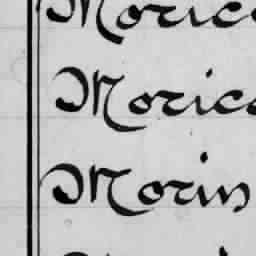 Morico
Morico
Morin